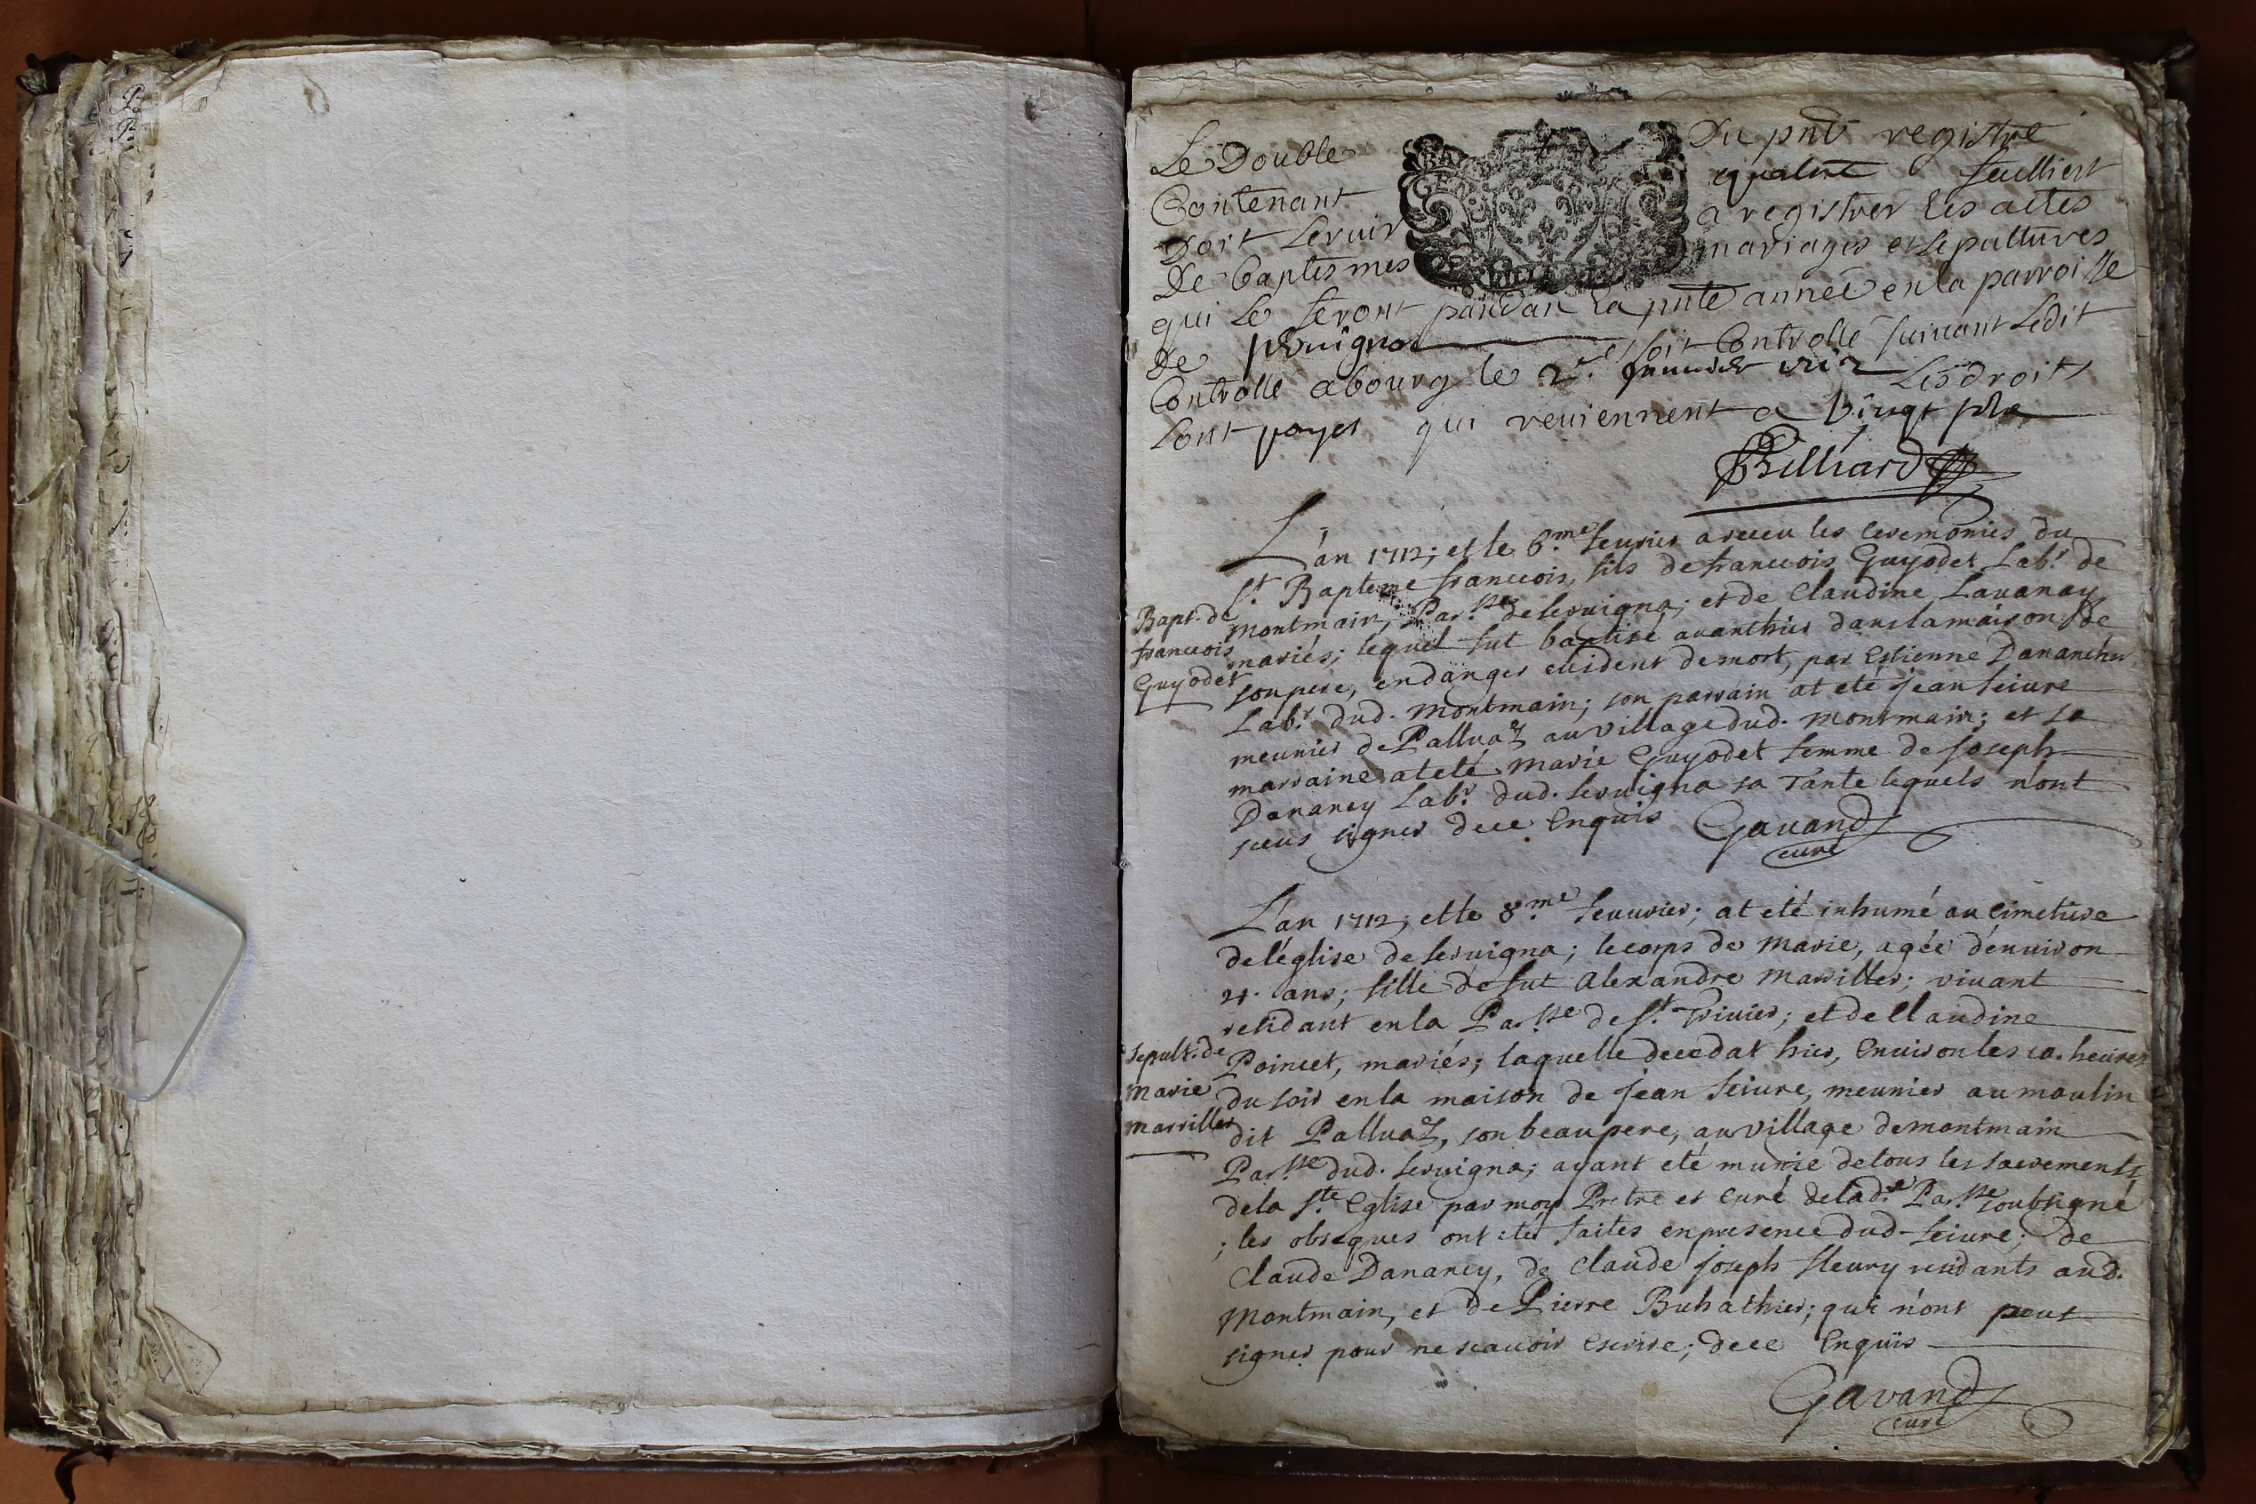 Le Double Du pnt registre
Contenant quatre feulliets
Doit servir a registrer les actes
De baptesmes mariages et sepultures
qui se feront pandan la pnte année en la parroisse
De servigna soit Controllé suivant Ledit
Controllé a bourg le 2e. janvier 1712 Les droits
sont payes qui reviennent a vingt sols
Billiard
L'an 1712; et le 6.me fevrier a receu les ceremonies du
St. Bapteme francois, fils de francois Guyodet Labr. de
montmain, Par.sse de servigna; et de Claudine Lavanay
mariés; lequel fut baptisé avanthier dans la maison de
son pere, en danger evident de mort, par Estienne Danancher
Labr. dud. montmain; son parrain at eté Jean feivre
meunier de Palluaz au village dud. montmain; et sa
marraine at eté marie Guyodet femme de joseph
Dananey Labr. dud. servigna sa Tante lequels n'ont
sceus signer dece Enquis Gavand
curé
Bapt. de
francois
Guyodet
L'an 1712; et le 8.me fevvrier; at eté inhumé au cimetiere
de l'église de servigna; le corps de marie, agée d'environ
21. ans; fille de fut alexandre marviller; vivant
residant en la Par.sse de St. Trivier; et de Claudine
Poincet, mariés; laquelle decedat hier, Environ les 10. heures
du soir en la maison de jean feivre, meunier au moulin
dit Palluaz, son beaupere, au village de montmain
Par.sse dud. servigna; ayant eté munie de tous les sacrements
de la Ste. Eglise par moy Pretre et curé de lad.e Par.sse soubsigné
; les obseques ont eter faites en presence dud. feivre; de
Claude Dananey, de Claude joseph fleury residants aud.
Montmain, et de Pierre Buhathier; qui n'ont peut
signer pour ne scavoir escrire; dece Enquis
Gavand
curé
sepult. de
marie
marviller